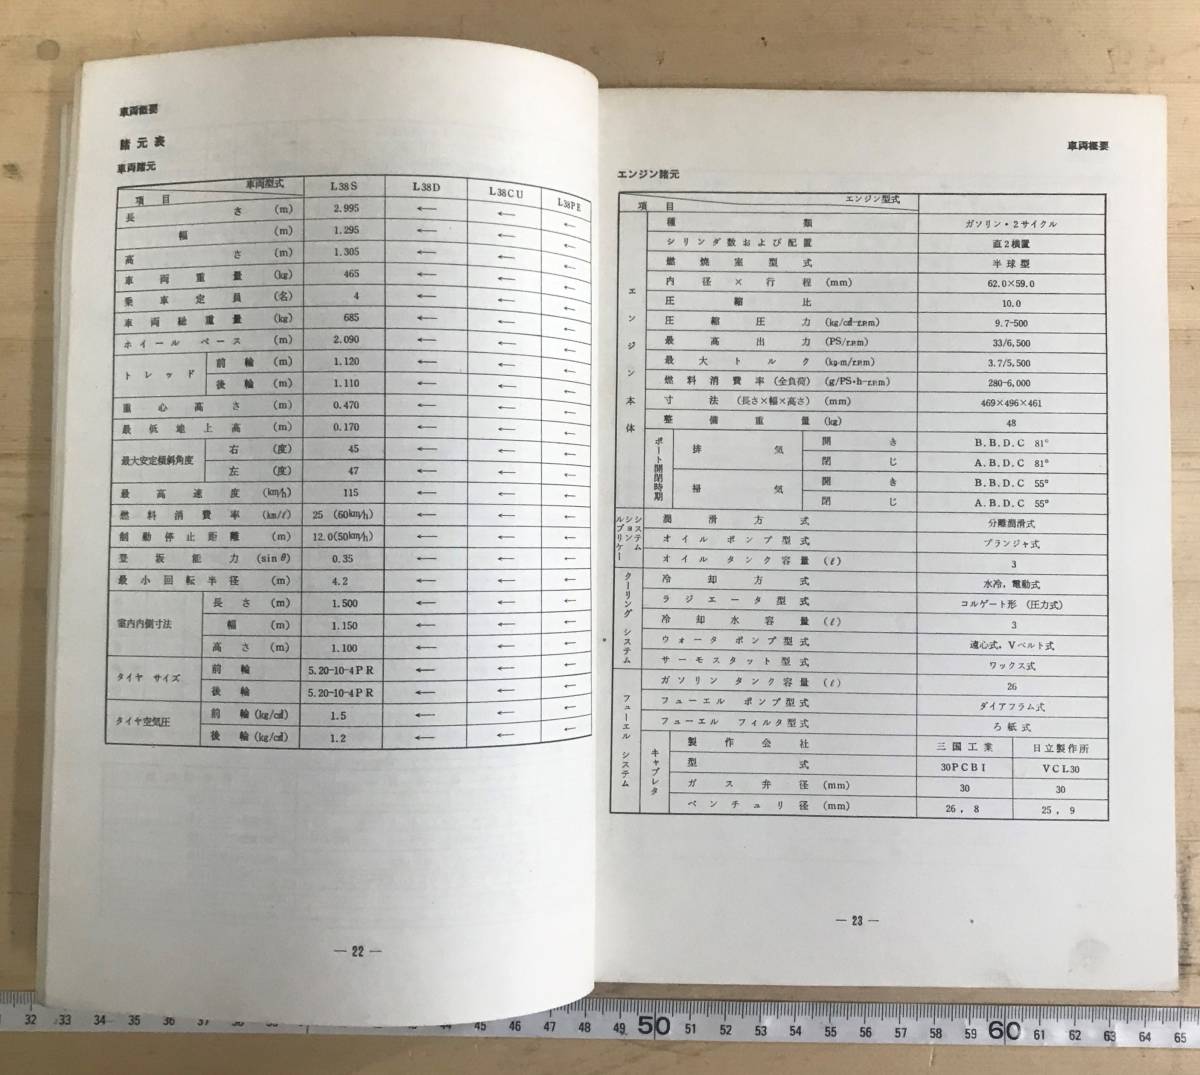 車両概要
諸元表
車両諸元
項目 車両型式 L38S L38D L38CU L38PE
長さ (m) 2.995 ← ← ←
幅 (m) 1.295 ← ← ←
高さ (m) 1.305 ← ← ←
車両重量 (kg) 465 ← ← ←
乗車定員 (名) 4 ← ← ←
車両総重量 (kg) 685 ← ← ←
ホイールベース (m) 2.090 ← ← ←
トレッド 前輪 (m) 1.120 ← ← ←
後輪 (m) 1.110 ← ← ←
重心高さ (m) 0.470 ← ← ←
最低地上高 (m) 0.170 ← ← ←
最大安定傾斜角度 右 (度) 45 ← ← ←
左 (度) 47 ← ← ←
最高速度 (km/h) 115 ← ← ←
燃料消費率 (km/ℓ) 25 (60km/h) ← ← ←
制動停止距離 (m) 12.0(50km/h) ← ← ←
登坂能力 (sinθ) 0.35 ← ← ←
最小回転半径 (m) 4.2 ← ← ←
室内内側寸法 長さ (m) 1.500 ← ← ←
幅 (m) 1.150 ← ← ←
高さ (m) 1.100 ← ← ←
タイヤ サイズ 前輪 5.20-10-4PR ← ← ←
後輪 5.20-10-4PR ← ← ←
タイヤ空気圧 前輪 (kg/c㎡) 1.5 ← ← ←
後輪 (kg/c㎡) 1.2 ← ← ←
— 22 —
車両概要
エンジン諸元
項目 エンジン型式
エンジン本体 種類 ガソリン・2サイクル
シリンダ数および配置 直2横置
燃焼室型式 半球型
内径×行程 (mm) 62.0×59.0
圧縮比 10.0
圧縮圧力 (kg/c㎡-r.p.m) 9.7-500
最高出力 (PS/r.p.m) 33/6,500
最大トルク (kg-m/r.p.m) 3.7/5,500
燃料消費率 (全負荷) (g/PS・h-r.p.m) 280-6,000
寸法 (長さ×幅×高さ) (mm) 469×496×461
整備重量 (kg) 48
ポート開閉時期 排気 開き B.B.D.C 81°
閉じ A.B.D.C 81°
掃気 開き B.B.D.C 55°
閉じ A.B.D.C 55°
ルブリケーションシステム 潤滑方式 分離潤滑式
オイルポンプ型式 プランジャ式
オイルタンク容量 (ℓ) 3
クーリング システム 冷却方式 水冷，電動式
ラジエータ型式 コルゲート形 (圧力式)
冷却水容量 (ℓ) 3
ウォータポンプ型式 遠心式，Vベルト式
サーモスタット型式 ワックス式
フューエル システム ガソリンタンク容量 (ℓ) 26
フューエルポンプ型式 ダイアフラム式
フューエルフィルタ型式 ろ紙式
キャブレタ 製作会社 三国工業 日立製作所
型式 30PCBI VCL30
ガス弁径 (mm) 30 30
ベンチュリ径 (mm) 26，8 25，9
— 23 —
32 33 34 35 36 37 38 39 40 41 42 43 44 45 46 47 48 49 50 51 52 53 54 55 56 57 58 59 60 61 62 63 64 65